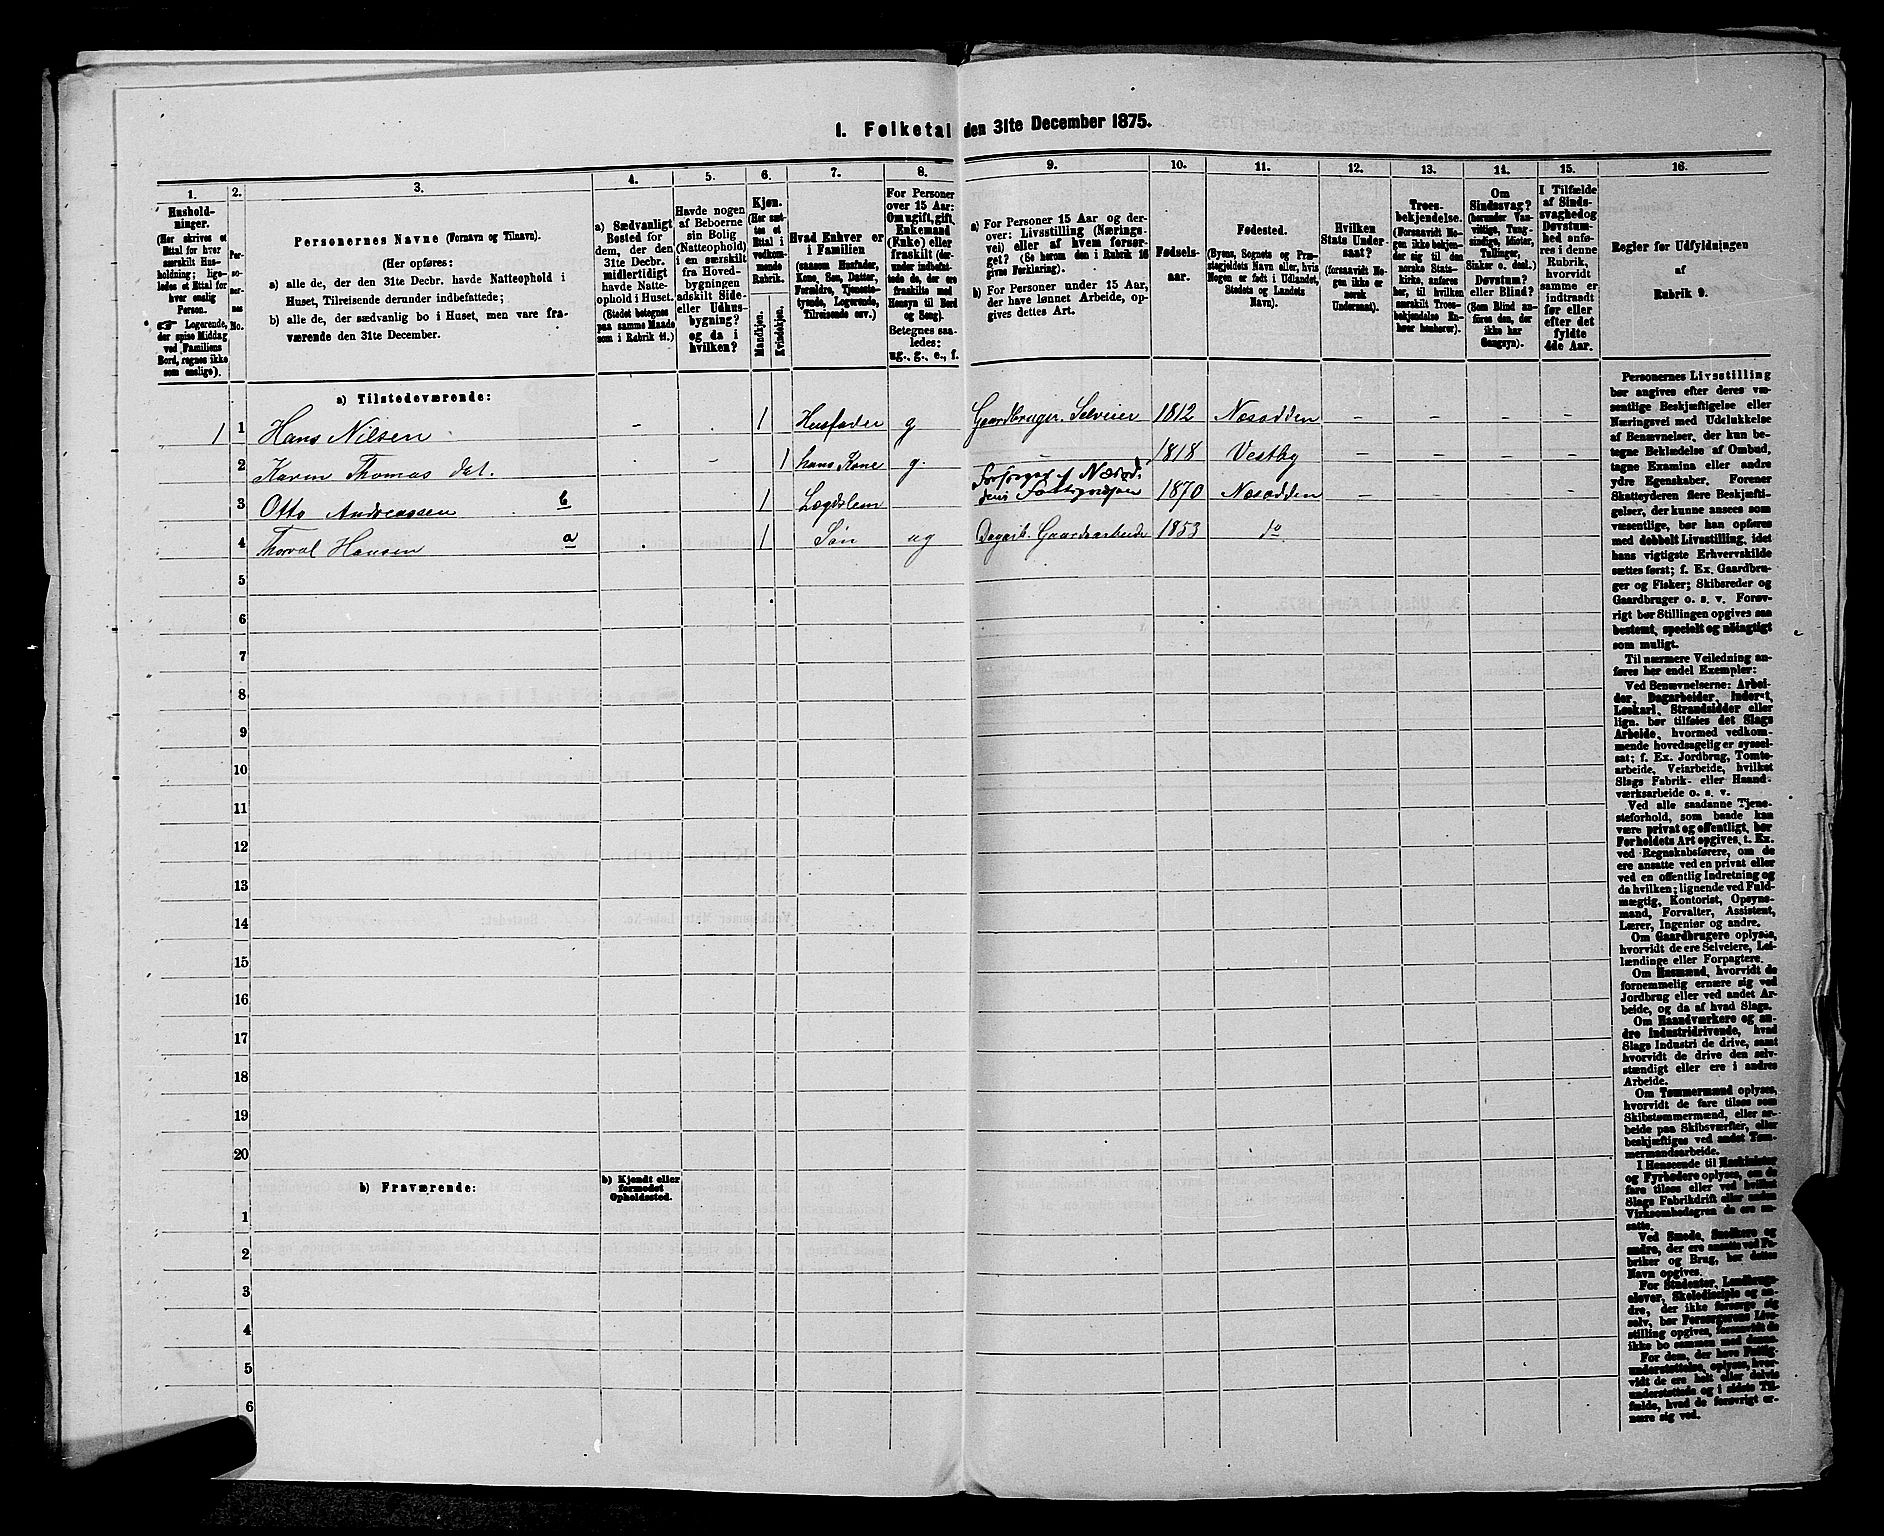 1. Folketal den 31te December 1875.
1.
2.
3.
4.
5.
6.
7.
8.
9.
10.
11.
12.
13.
14.
15.
16.
Husholdninger.
(Her skrives et Ettal for hver særskilt Husholdning; ligeledes et Ettal for hver enslig Person.
☞ Logerende, der spise Middag ved Familiens Bord, regnes ikke som enslige).
Personernes No.
Personernes Navne (Fornavn og Tilnavn).
(Her opføres:
a) alle de, der den 31te Decbr. havde Natteophold i
Huset, Tilreisende derunder indbefattede;
b) alle de, der sædvanlig bo i Huset, men vare fra-
værende den 31te December.
a) Sædvanligt
Bosted for
dem, der den
31te Decbr.
midlertidigt
havde Natte-
ophold i Huset.
(Stedet betegnes
paa samme Maade
som i Rubrik 11.)
Havde nogen
af Beboerne
sin Bolig
(Natteophold)
i en særskilt
fra Hoved-
bygningen
adskilt Side-
eller Udhus-
bygning?
og da i
hvilken?
Kjøn.
(Her sæt-
tes et
Ettal i
vedkom-
mende
Rubrik.
Mandkjøn.
Kvindekjøn.
Hvad Enhver er
i Familien
(saasom Husfader,
Kone, Søn, Datter,
Forældre, Tjeneste-
tyende, Logerende,
Tilreisende osv.)
For Personer
over 15 Aar:
Om ugift, gift,
Enkemand
(Enke) eller
fraskilt (der-
under indbefat-
tede de, der ere
fraskilte med
Hensyn til Bord
og Seng).
Betegnes saa-
ledes:
ug., g., e., f.
a) For Personer 15 Aar og der-
over: Livsstilling (Nærings-
vei) eller af hvem forsør-
get? (Se herom den i Rubrik 16
givne Forklaring).
b) For Personer under 15 Aar,
der have lønnet Arbeide, op-
gives dettes Art.
Fødsels-
aar.
Fødested.
(Byens, Sognets og Præ-
stegjeldets Navn eller, hvis
Nogen er født i Udlandet,
Stedets og Landets
Navn).
Hvilken
Stats Under-
saat?
(forsaavidt No-
gen ikke er
norsk
Undersaat).
Troes-
bekjendelse.
(Forsaavidt No-
gen ikke bekjen-
der sig til den
norske Stats-
kirke, anføres
her, til hvilken
særskilt Troes-
bekjendelse En-
hver henhører).
Om
Sindssvag?
(herunder Van-
vittige, Tung-
sindige, Idioter,
Tullinger,
Sinker o. desl.)
Døvstum?
eller Blind?
(Som Blind an-
føres den, der
ikke har
Gangsyn).
I Tilfælde
af Sinds-
svaghed og
Døvstum-
hed anfø-
res i denne
Rubrik,
hvorvidt
samme er
indtraadt
før eller
efter det
fyldte
4de Aar.
Regler for Udfyldningen
af
Rubrik 9.
a) Tilstedeværende:
1 1 Hans Nilsen - . 1 Husfader g Gaardbruger Selveier 1812 Næsodden - - - -
2 Karen Thomas dat. - 1 hans Kone g. - 1818 Vestby - - - -
3 Otto Andreassen b 1 Lægdslem Forsørget af Næsod-
dens Fattigvæsen 1870 Næsodden - -
4 Thorval Hansen a 1 Søn ug Dagarb. Gaardsarbeide 1853 do
5
6
7
8
9
10
11
12
13
14
15
16
17
18
19
20
b) Fraværende:
b) Kjendt eller
formodet
Opholdssted.
1
2
3
4
5
6
Personernes Livsstilling
bør angives efter deres væ-
sentlige Beskjæftigelse eller
Næringsvei med Udelukkelse
af Benævnelser, der kun be-
tegne Beklædelse af Ombud,
tagne Examina eller andre
ydre Egenskaber. Forener
Skatteyderen flere Beskjæfti-
gelser, der kunne ansees som
væsentlige, bør han opføres
med dobbelt Livsstilling, idet
hans vigtigste Erhvervskilde
sættes først; f. Ex. Gaardbru-
ger og Fisker; Skibsreder og
Gaardbruger o. s. v. Forøv-
rigt bør Stillingen opgives saa
bestemt, specielt og nøiagtigt
som muligt.
Til nærmere Veiledning an-
føres her endel Exempler:
Ved Benævnelserne: Arbei-
der, Dagarbeider, Inderst,
Løskarl, Strandsidder eller
lign. bør tilføies det Slags
Arbeide, hvormed vedkom-
mende hovedsagelig er syssel-
sat; f. Ex. Jordbrug, Tomte-
arbeide, Veiarbeide, hvilket
Slags Fabrik- eller Haand-
værksarbeide o. s. v.
Ved alle saadanne Tjene-
steforhold, som baade kan
være privat og offentligt, bør
Forholdets Art opgives, t. Ex.
ved Regnskabsførere, om de
ere ansatte ved en privat eller
ved en offentlig Indretning og
da hvilken; lignende ved Fuld-
mægtig, Kontorist, Opsyns-
mand, Forvalter, Assistent,
Lærer, Ingeniør og andre.
Om Gaardbrugere oplyses,
hvorvidt de ere Selveiere, Lei-
lændinge eller Forpagtere.
Om Husmænd, hvorvidt de
fornemmelig ernære sig ved
Jordbrug eller ved andet Ar-
beide, og da af hvad Slags.
Om Haandværkere og an-
dre Industridrivende, hvad
Slags Industri de drive, samt
hvorvidt de drive den selv-
stændigt eller ere i andres
Arbeide.
Om Tømmermænd oplyses,
hvorvidt de fare tilsøs som
Skibstømmermænd, eller ar-
beide paa Skibsværfter, eller
beskjæftiges ved andet Tøm-
mermandsarbeide.
I Henseende til Maskinister
og Fyrbødere oplyses, om de
fare tilsøs eller ved hvilket
Slags Fabrikdrift eller anden
Virksomhedsgren de ere an-
satte.
Ved Smede, Snedkere og
andre, der ere ansatte ved Fa-
briker og Brug, bør dettes
Navn opgives.
For Studenter, Landbrugs-
elever, Skoledisciple og an-
dre, der ikke forsørge sig
selv, bør Forsørgerens Livs-
stilling opgives, forsaavidt de
ikke bo sammen med denne.
For dem, der have Fattig-
understøttelse, oplyses, hvor-
vidt de ere helt eller delvis
understøttede og i sidste Til-
fælde, hvad de forøvrigt er-
nære sig ved.